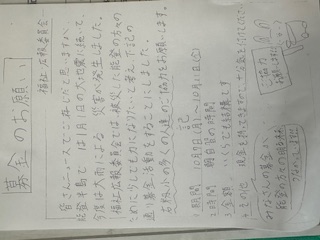 募金のお願い
福祉・広報委員会
皆さんニュースでご存じだと思いますが
能登半島で は1月1日の大地震に続いて、
今度は大雨による 災害が発生しました。
福祉・広報委員会では、被災した能登の方々の
ために少しでも力になりたいと考え、下記の
通り募金活動をすることにしました。
小の多くの人達のご協力をお願いします。
記
1 期間 10月7日(月)〜10月11日(金)
2 時間 朝自習の時間
3 金額 いくらでも結構です
4 その他 現金を持ってきますので、十分気を付けてください
みなさんの募金が
能登の方々の
つながります
ご協力
お願いします